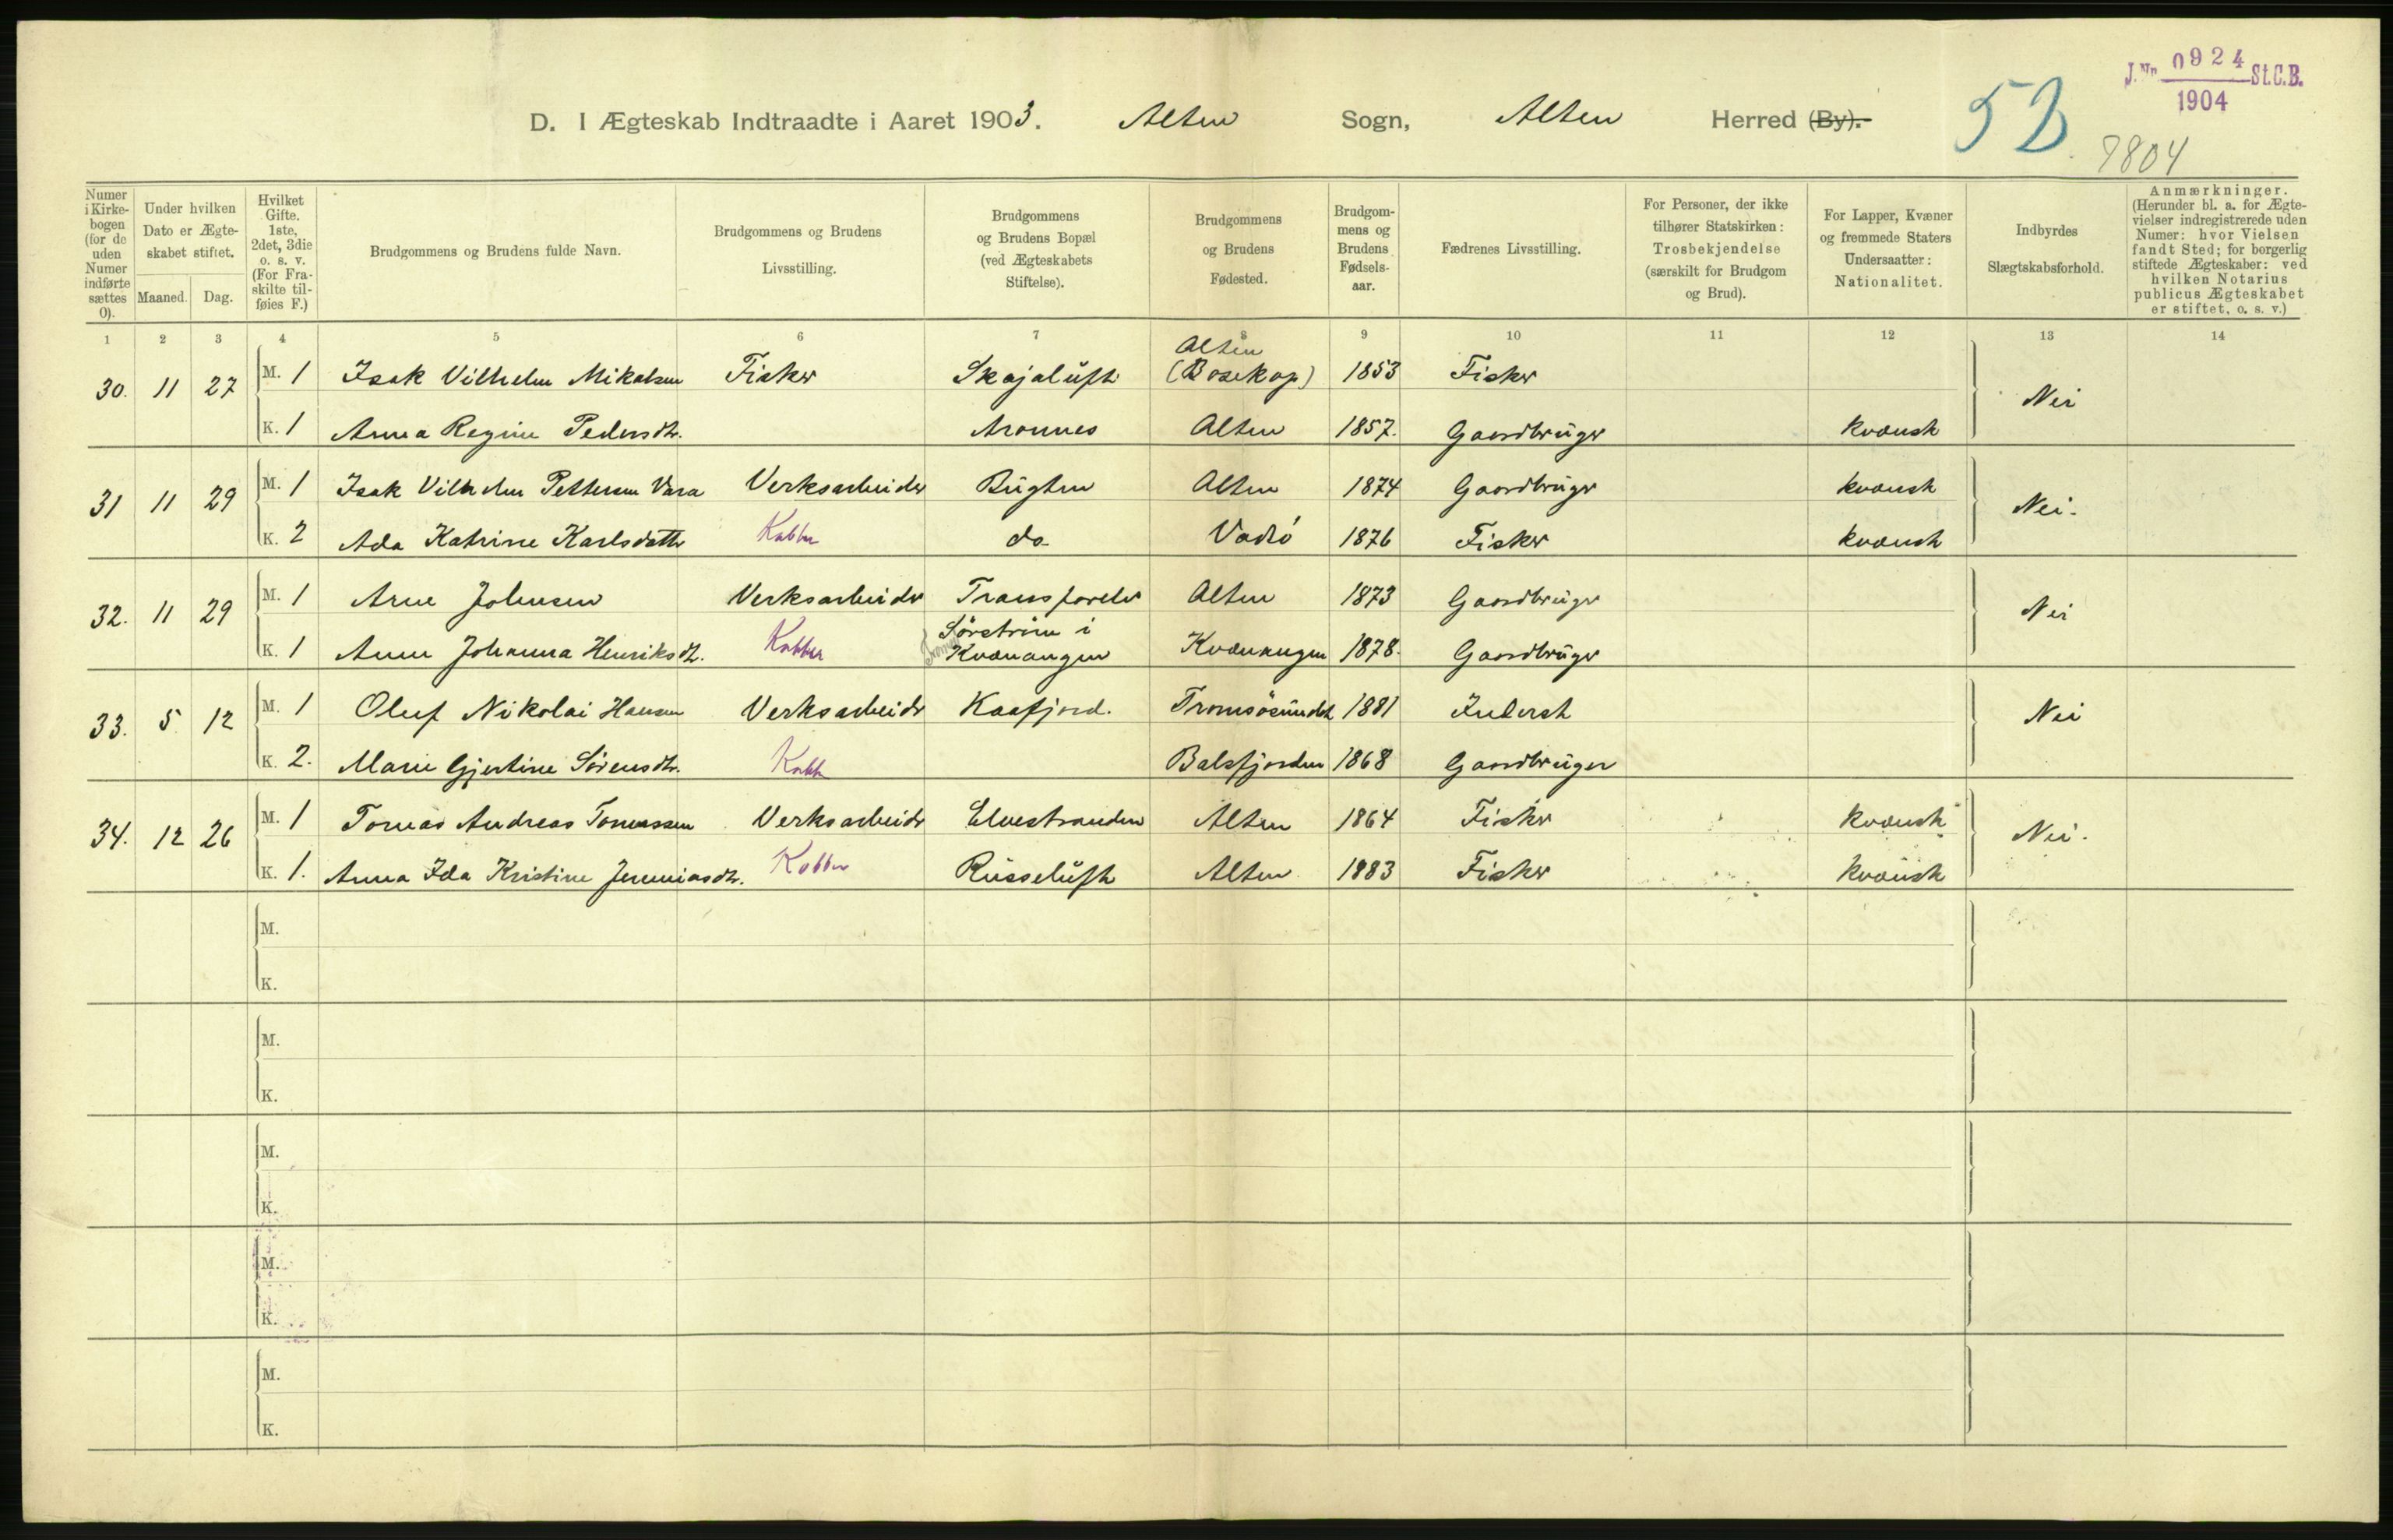 J.Nr. 0924 St.C.B.
1904
52
7804
D. I Ægteskab Indtraadte i Aaret 1903. Alten Sogn, Alten Herred (By).
Numer i Kirkebogen (for de uden Numer indførte sættes 0).
Under hvilken Dato er Ægteskabet stiftet.
Maaned. Dag.
Hvilket Gifte. 1ste, 2det, 3die o. s. v. (For Fraskilte tilføies F.)
Brudgommens og Brudens fulde Navn.
Brudgommens og Brudens Livsstilling.
Brudgommens og Brudens Bopæl (ved Ægteskabets Stiftelse).
Brudgommens og Brudens Fødested.
Brudgommens og Brudens Fødselsaar.
Fædrenes Livsstilling.
For Personer, der ikke tilhører Statskirken: Trosbekjendelse (særskilt for Brudgom og Brud).
For Lapper, Kvæner og fremmede Staters Undersaatter: Nationalitet.
Indbyrdes Slægtskabsforhold.
Anmærkninger. (Herunder bl. a. for Ægtevielser indregistrerede uden Numer: hvor Vielsen fandt Sted; for borgerlig stiftede Ægteskaber: ved hvilken Notarius publicus Ægteskabet er stiftet, o. s. v.)
1 2 3 4 5 6 7 8 9 10 11 12 13 14
30. 11 27 M. 1 Isak Vilhelm Mikalsen Fisker Skajaluft Alten (Bosekop) 1853 Fisker Nei
K. 1 Anna Regine Pedersdtr. Aronnes Alten 1857. Gaardbruger kvænsk
31 11 29 M. 1 Isak Vilhelm Pettersen Vara Verksarbeider Bugten Alten 1874 Gaardbruger kvænsk Nei.
K. 2 Ada Katrine Karlsdatter Kobber do Vadsö 1876 Fisker kvænsk
32. 11 29 M. 1 Arne Johnsen Verksarbeider Transfarelv Alten 1873 Gaardbruger Nei
K. 1 Anne Johanna Henriksdtr. Kobber Sörstrüm i Kvænangen Kvænangen 1878. Gaardbruger
33. 5 12 M. 1 Oluf Nikolai Hansen Verksarbeider Kaafjord. Tromsösundet 1881 Inderst Nei
K. 2. Marie Gjertine Sörensdtr. Kobb Balsfjorden 1868 Gaardbruger
34. 12 26 M. 1 Tomas Andreas Tomassen Verksarbeider Elvestranden Alten 1864 Fisker kvænsk Nei.
K. 1. Anna Ida Kristine Jeremiasdtr. Kobber Russeluft Alten 1883 Fisker kvænsk
M.
K.
M.
K.
M.
K.
M.
K.
M.
K.